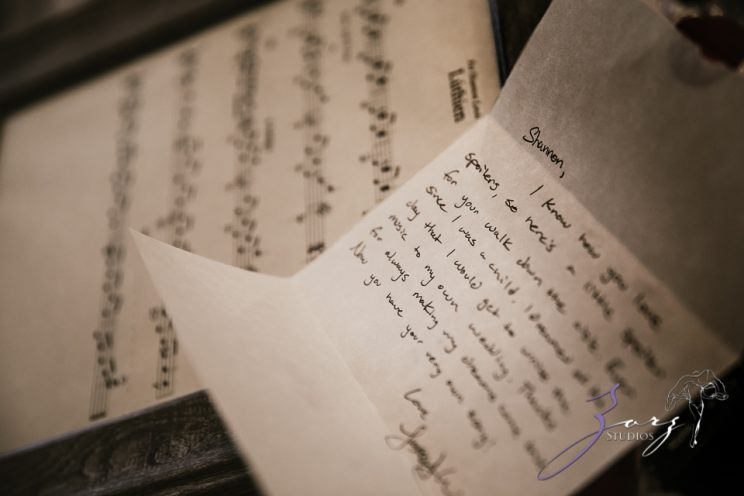 Lúthien
Shannon,
I know how you love
spoilers, so here's a little spoiler
for your walk down the aisle. Ever
since I was a child, I dreamed of the
day that I would get to write the
music to my own wedding. Thanks
for always making my dreams come true.
Now you have your very own song!
Love,
Zorz
STUDIOS